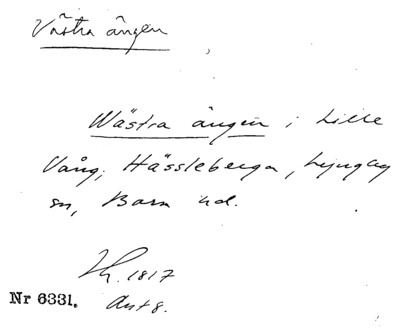 Västra ängen
Wästra ängen i Lille
Vång, Hässleberga, Ljunghy
sn, Bara hd.
Lh. 1817
Nr 6331. Akt 8.